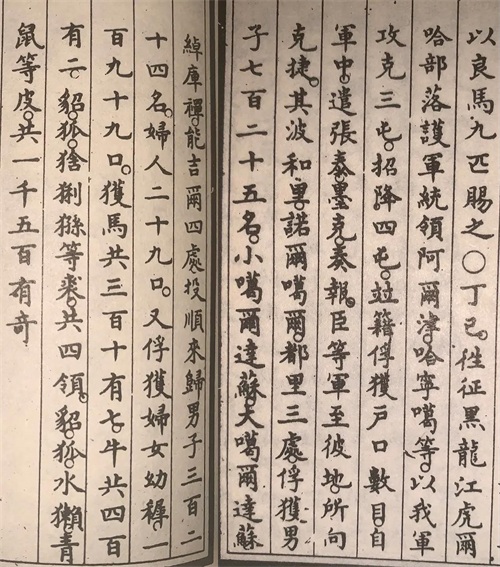 以良馬九匹賜之〇丁巳。往征黑龍江虎爾
哈部落護軍統領阿爾津。哈寧噶等。以我軍
攻克三屯。招降四屯。竝籍俘獲戶口數目。自
軍中。遣張泰臺克。奏報。臣等軍至彼地。所向
克捷。其波和里。諾爾噶爾。都里三處。俘獲男
子七百二十五名。小噶爾達蘇。大噶爾達蘇。
綽庫禪。能吉爾四處投順來歸男子三百二
十四名。婦人二十九口。又俘獲婦女幼穉。一
百九十九口。獲馬共三百十有七。牛共四百
有二。貂。狐。猞猁猻等裘。共四領。貂。狐。水獺。青
鼠等皮。共一千五百有奇